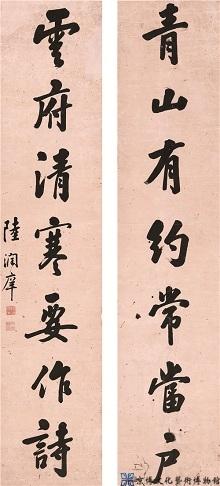 青山有約常當户
雲府清寒要作詩
陸潤庠
文化藝術博物館